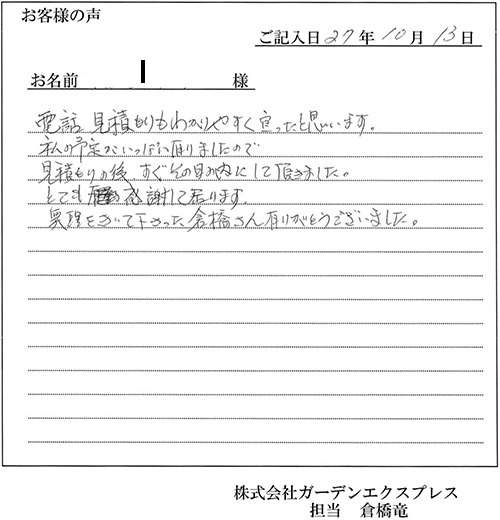 お客様の声
ご記入日 27年 10月 13日
お名前 様
電話 見積もりもわかりやすく宜ったと思います。
私の予定がいっぱい有りましたので
見積もりの後、すぐその日の内にして頂きました。
とても 感謝して居ります。
無理をきいて下さった倉橋さん有りがとうございました。
株式会社ガーデンエクスプレス
担当 倉橋竜